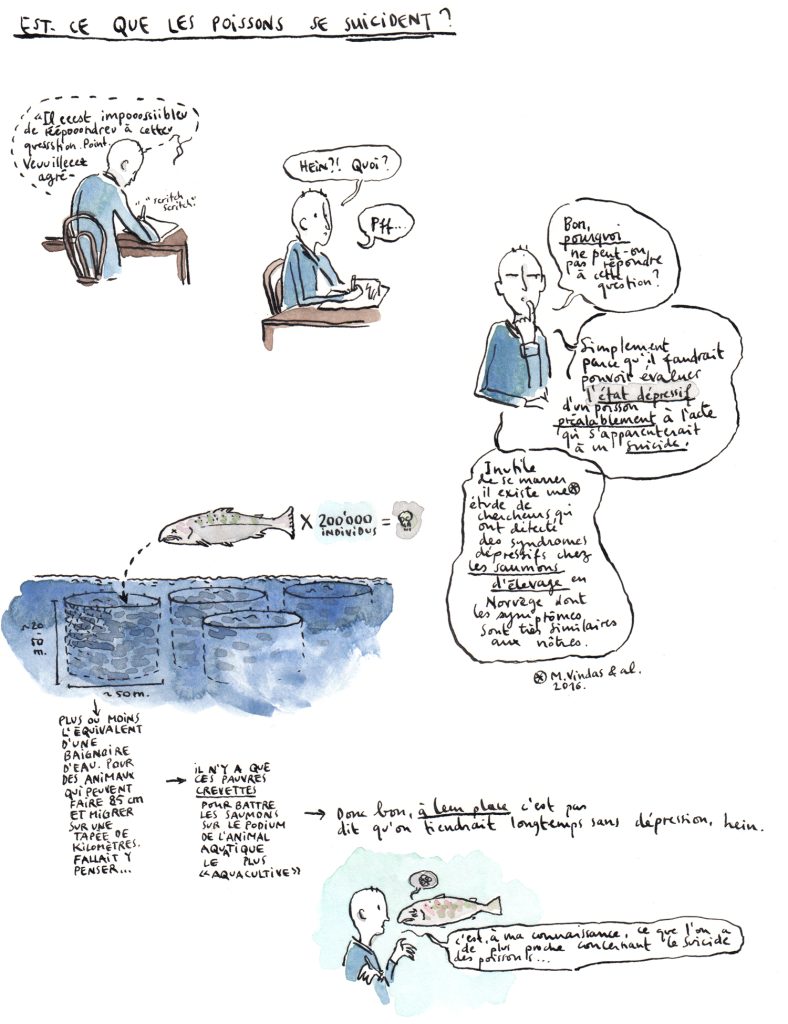 EST-CE QUE LES POISSONS SE SUICIDENT ?
"Il eeest impooossiibleu
de réépooondreu à cetteu
quesstion. Point.
Veuuilleeez
agré-
"scritch
scritch"
HEIN?! QUOI?
Pff...
Bon,
pourquoi
ne peut-on
pas répondre
à cette
question?
Simplement
parce qu'il faudrait
pouvoir évaluer
l'état dépressif
d'un poisson
préalablement à l'acte
qui s'apparenterait
à un suicide.
Inutile
de se marrer
il existe une
étude de
chercheurs qui
ont détecté
des syndromes
dépressifs chez
les saumons
d'élevage en
Norvège dont
les symptômes
sont très similaires
aux nôtres.
M. Vindas & al.
2016.
X 200'000 =
INDIVIDUS
~20
-
50
m.
~50m.
PLUS OU MOINS
L'ÉQUIVALENT
D'UNE
BAIGNOIRE
D'EAU. POUR
DES ANIMAUX
QUI PEUVENT
FAIRE 85 cm
ET MIGRER
SUR UNE
TAPÉE DE
KILOMÈTRES.
FALLAIT Y
PENSER...
→ IL N'Y A QUE
CES PAUVRES
CREVETTES
POUR BATTRE
LES SAUMONS
SUR LE PODIUM
DE L'ANIMAL
AQUATIQUE
LE PLUS
«AQUACULTIVÉ»
→ Donc bon, à leur place c'est pas
dit qu'on tiendrait longtemps sans dépression, hein.
c'est, à ma connaissance, ce que l'on a
de plus proche concernant le suicide
des poissons...